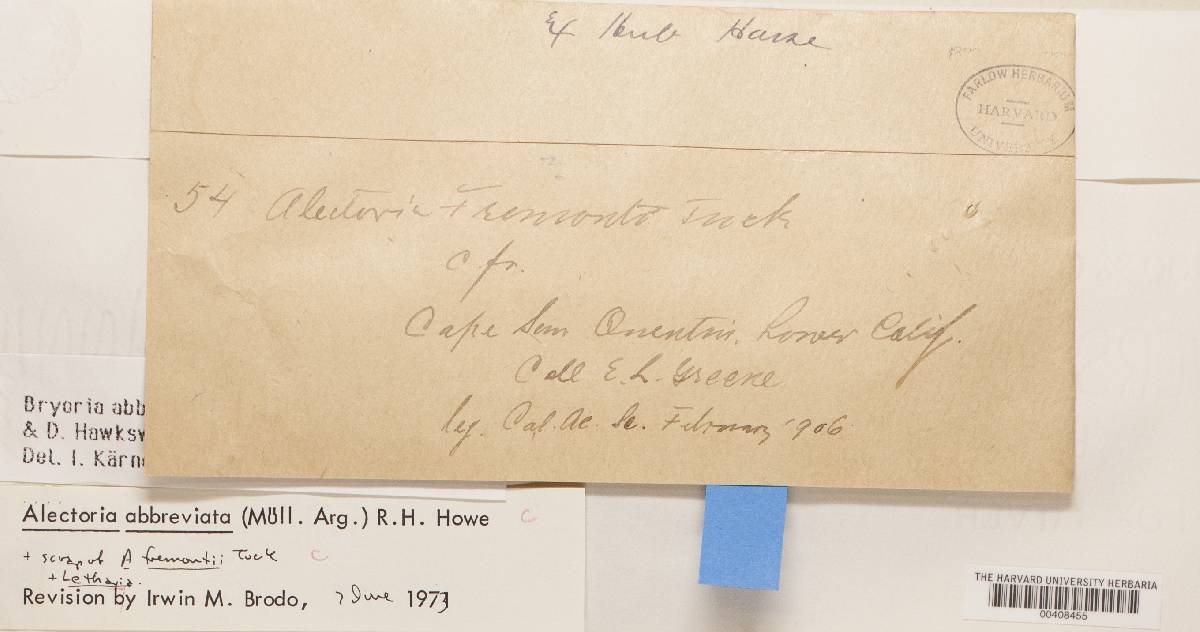 Ex Herb Hasse
FARLOW HERBARIUM
HARVARD
UNIVERSITY
54 Alectoria Fremonti Tuck
c. fr.
Cape San Quentin, Lower Calif.
Coll E. L. Greene
leg. Cal. Ac. Sc. February '906
Bryoria abb
& D. Hawksw
Det. I. Kärne
Alectoria abbreviata (Müll. Arg.) R.H. Howe c
+ scrap of A fremontii Tuck c
+ Letharia.
Revision by Irwin M. Brodo, 7 June 1973
THE HARVARD UNIVERSITY HERBARIA
00408455